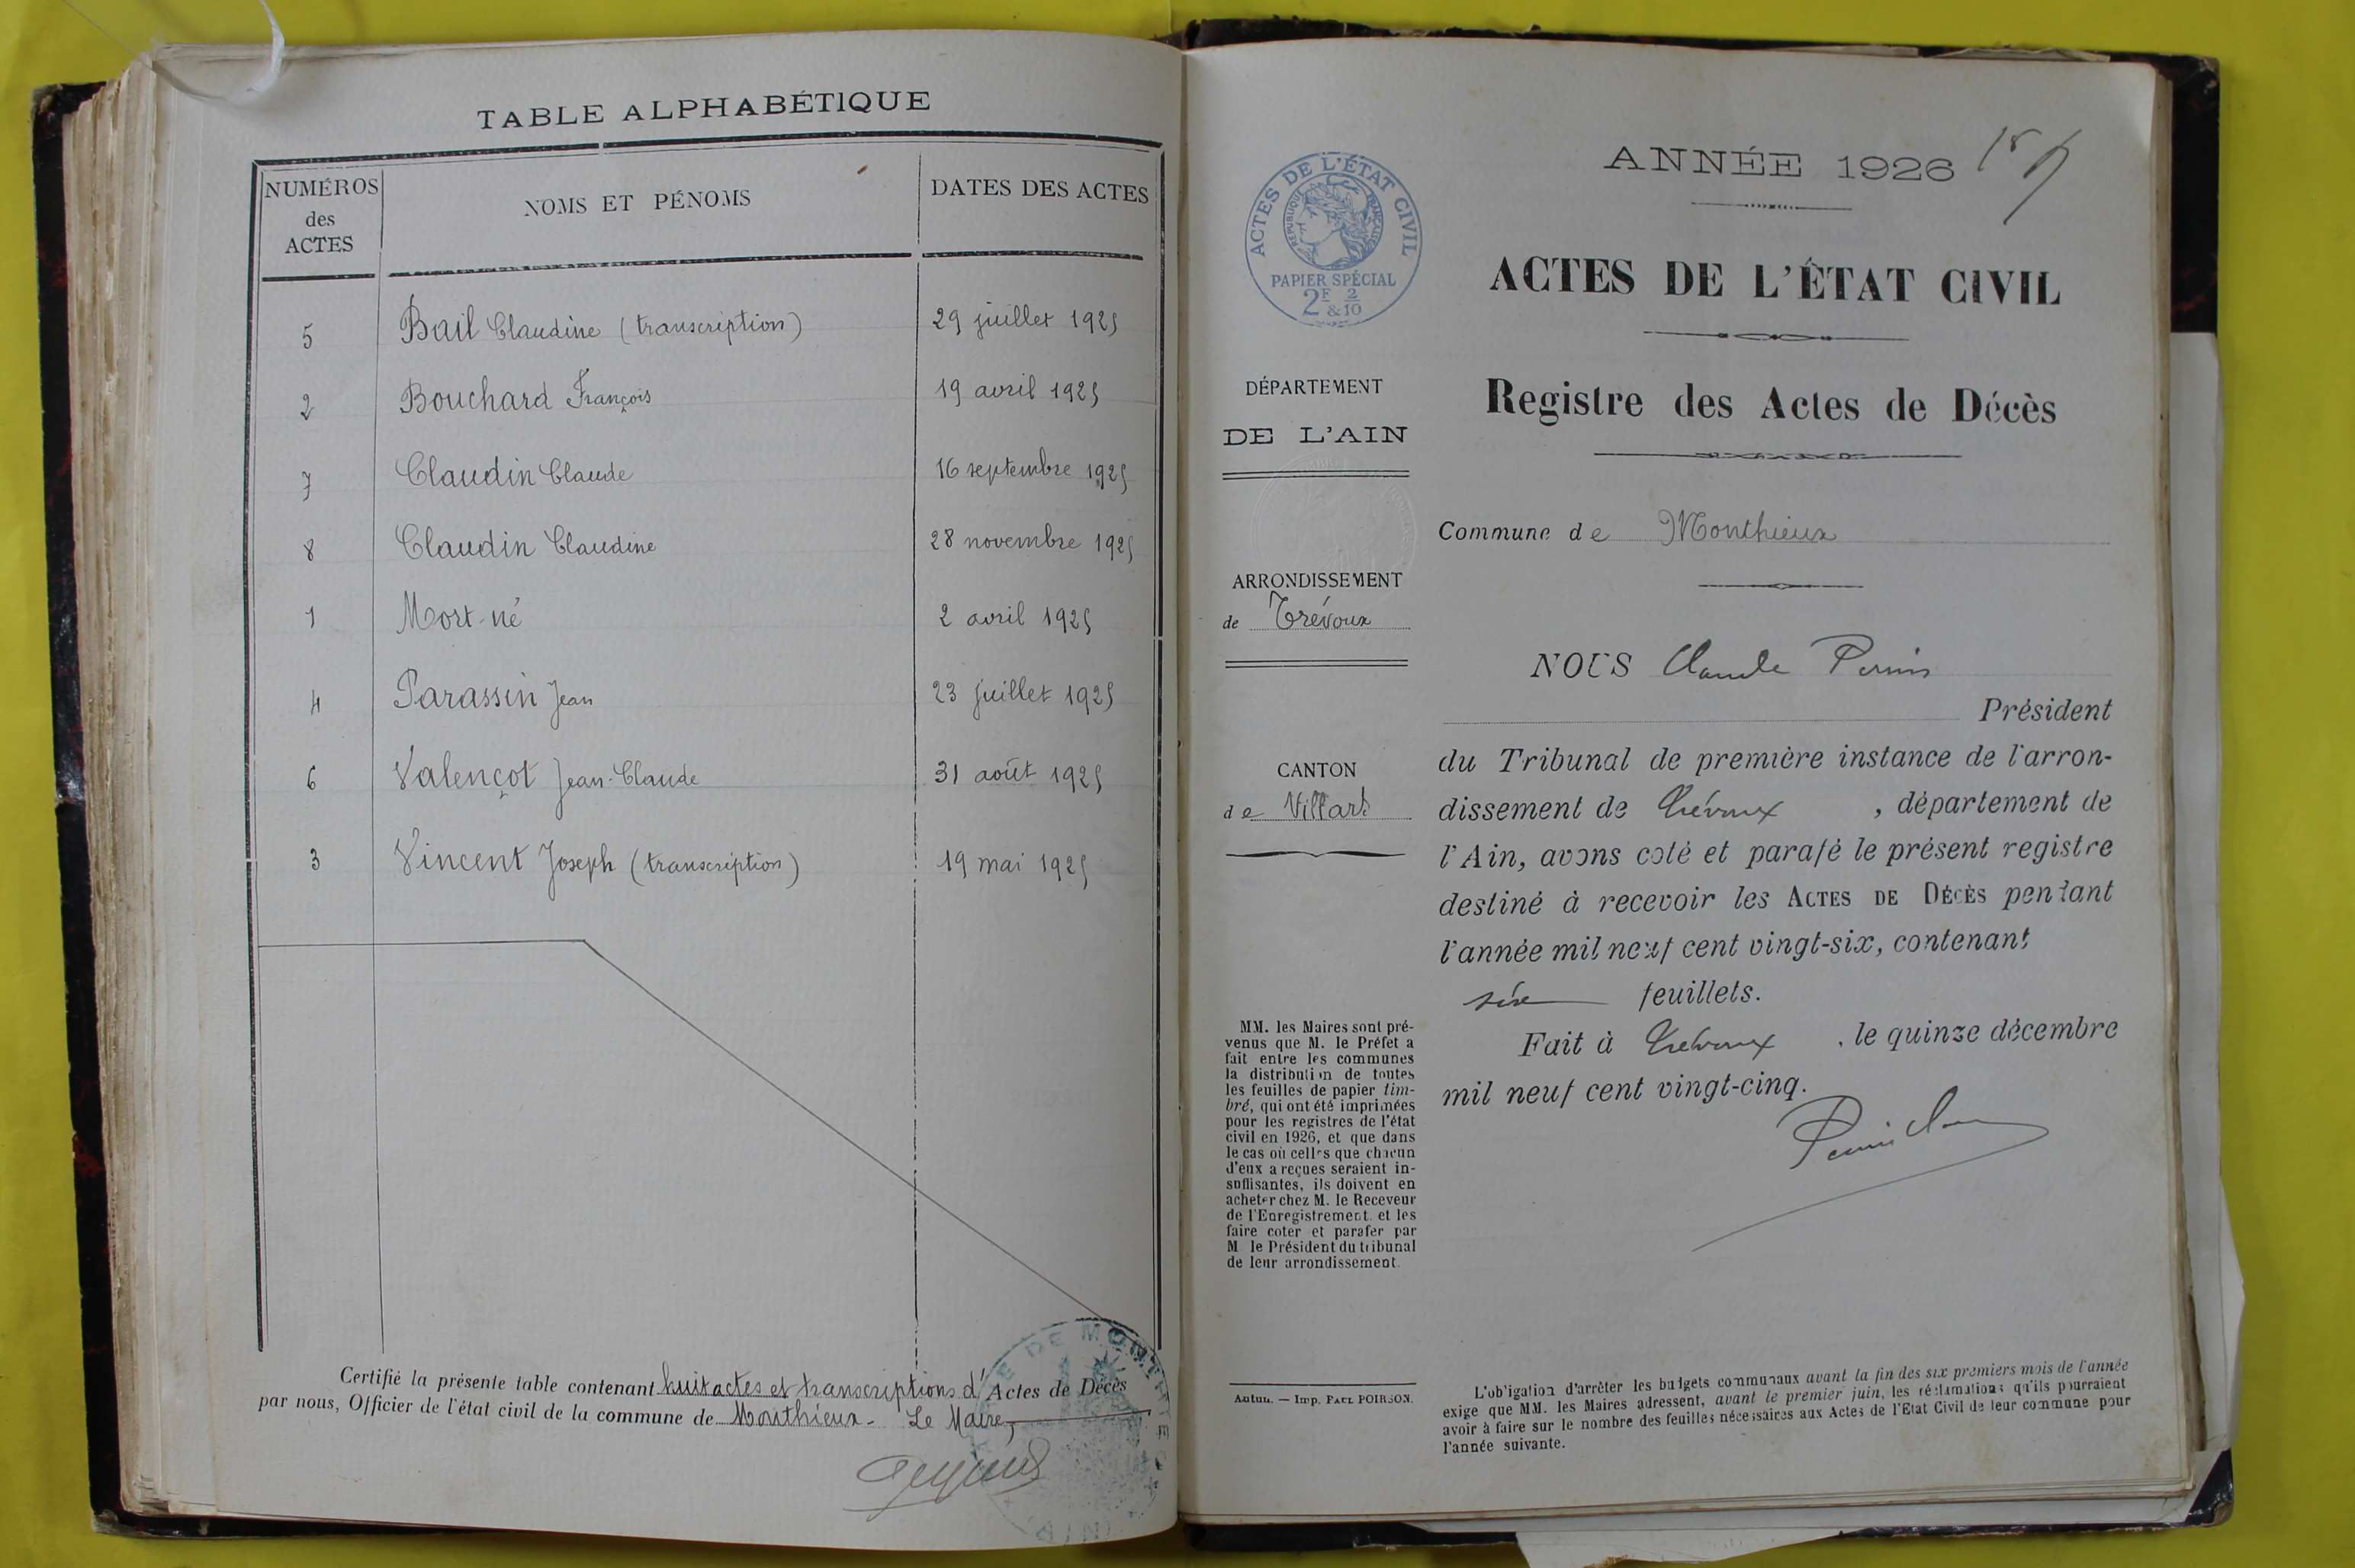 TABLE ALPHABÉTIQUE
NUMÉROS
des
ACTES
NOMS ET PÉNOMS
DATES DES ACTES
5 Bail Claudine (transcription) 29 juillet 1925
2 Bouchard François 19 avril 1925
7 Claudin Claude 16 septembre 1925
8 Claudin Claudine 28 novembre 1925
1 Mort-né 2 avril 1925
4 Parassin Jean 23 juillet 1925
6 Valençot Jean-Claude 31 août 1925
3 Vincent Joseph (transcription) 19 mai 1925
Certifié la présente table contenant huit actes et transcriptions d'Actes de Décès
par nous, Officier de l'état civil de la commune de Monthieux - Le Maire,
ANNÉE 1926
ACTES DE L'ÉTAT CIVIL
RÉPUBLIQUE FRANÇAISE
PAPIER SPÉCIAL
2F & 2/10
ACTES DE L'ÉTAT CIVIL
Registre des Actes de Décès
DÉPARTEMENT
DE L'AIN
Commune de Monthieux
ARRONDISSEMENT
de Trévoux
NOUS Claude Perrin
Président
CANTON
de Villars
du Tribunal de première instance de l'arron-
dissement de Trévoux, département de
l'Ain, avons coté et parafé le présent registre
destiné à recevoir les ACTES DE DÉCÈS pendant
l'année mil neuf cent vingt-six, contenant
six feuillets.
Fait à Trévoux, le quinze décembre
mil neuf cent vingt-cinq.
MM. les Maires sont pré-
venus que M. le Préfet a
fait entre les communes
la distribution de toutes
les feuilles de papier tim-
bré, qui ont été imprimées
pour les registres de l'état
civil en 1926, et que dans
le cas où celles que chacun
d'eux a reçues seraient in-
suffisantes, ils doivent en
acheter chez M. le Receveur
de l'Enregistrement. et les
faire coter et parafer par
M. le Président du tribunal
de leur arrondissement.
Autun. — Imp. PAUL POIRSON.
L'obligation d'arrêter les budgets communaux avant la fin des six premiers mois de l'année
exige que MM. les Maires adressent, avant le premier juin, les réclamations qu'ils pourraient
avoir à faire sur le nombre des feuilles nécessaires aux Actes de l'Etat Civil de leur commune pour
l'année suivante.